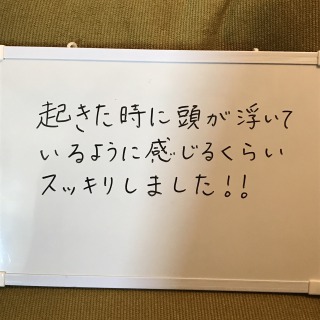 起きた時に頭が浮いて
いるように感じるくらい
スッキリしました!!